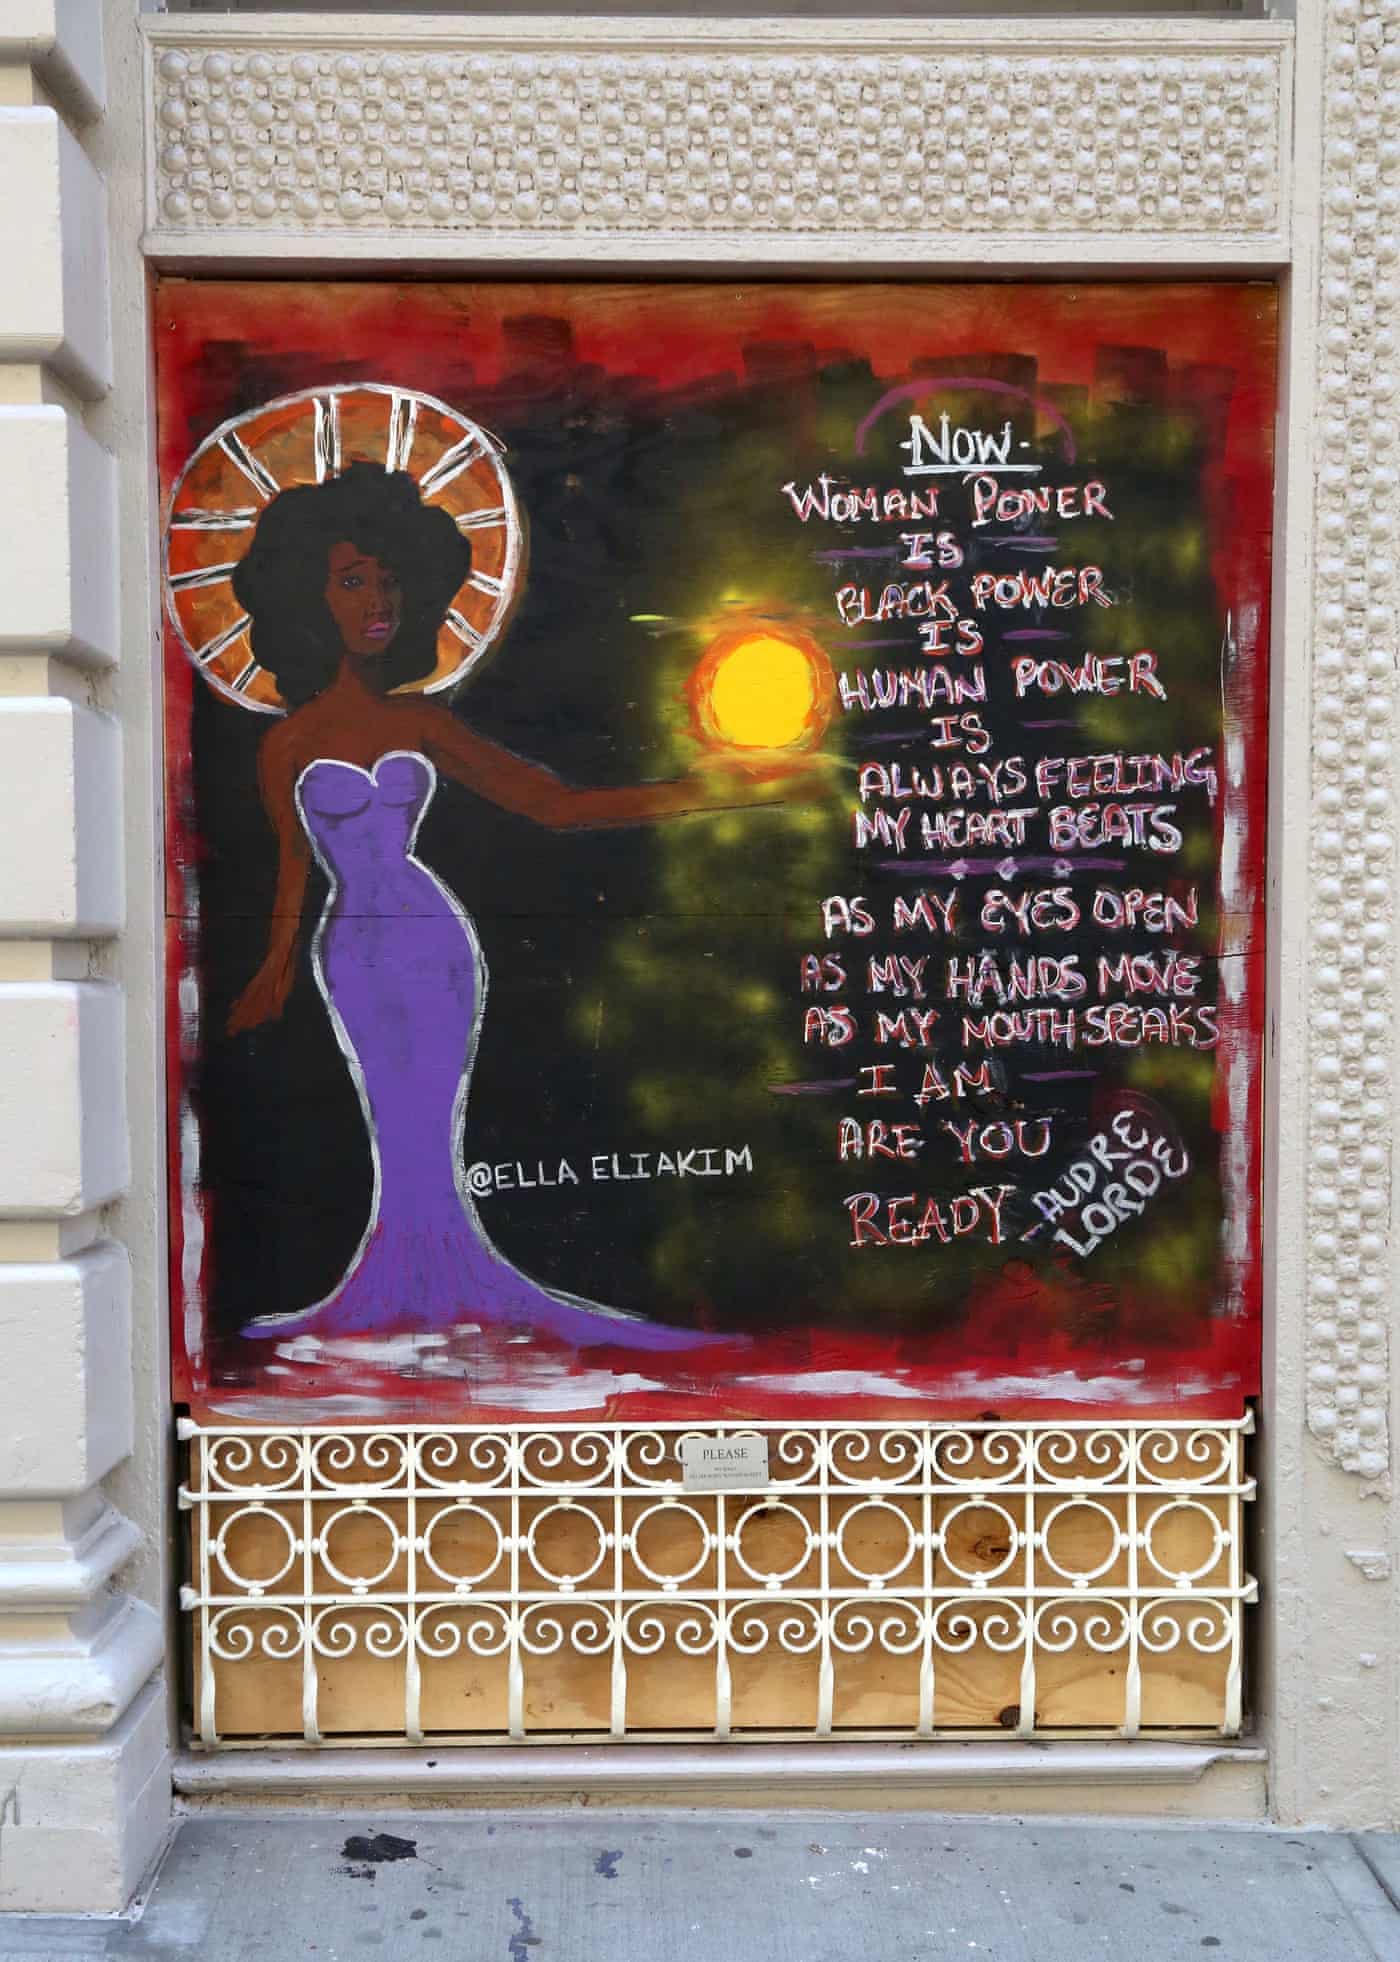 -NOW-
WOMAN POWER
IS
BLACK POWER
IS
HUMAN POWER
IS
ALWAYS FEELING
MY HEART BEATS
AS MY EYES OPEN
AS MY HANDS MOVE
AS MY MOUTH SPEAKS
I AM
ARE YOU
READY
AUDRE
LORDE
@ELLA ELIAKIM
PLEASE